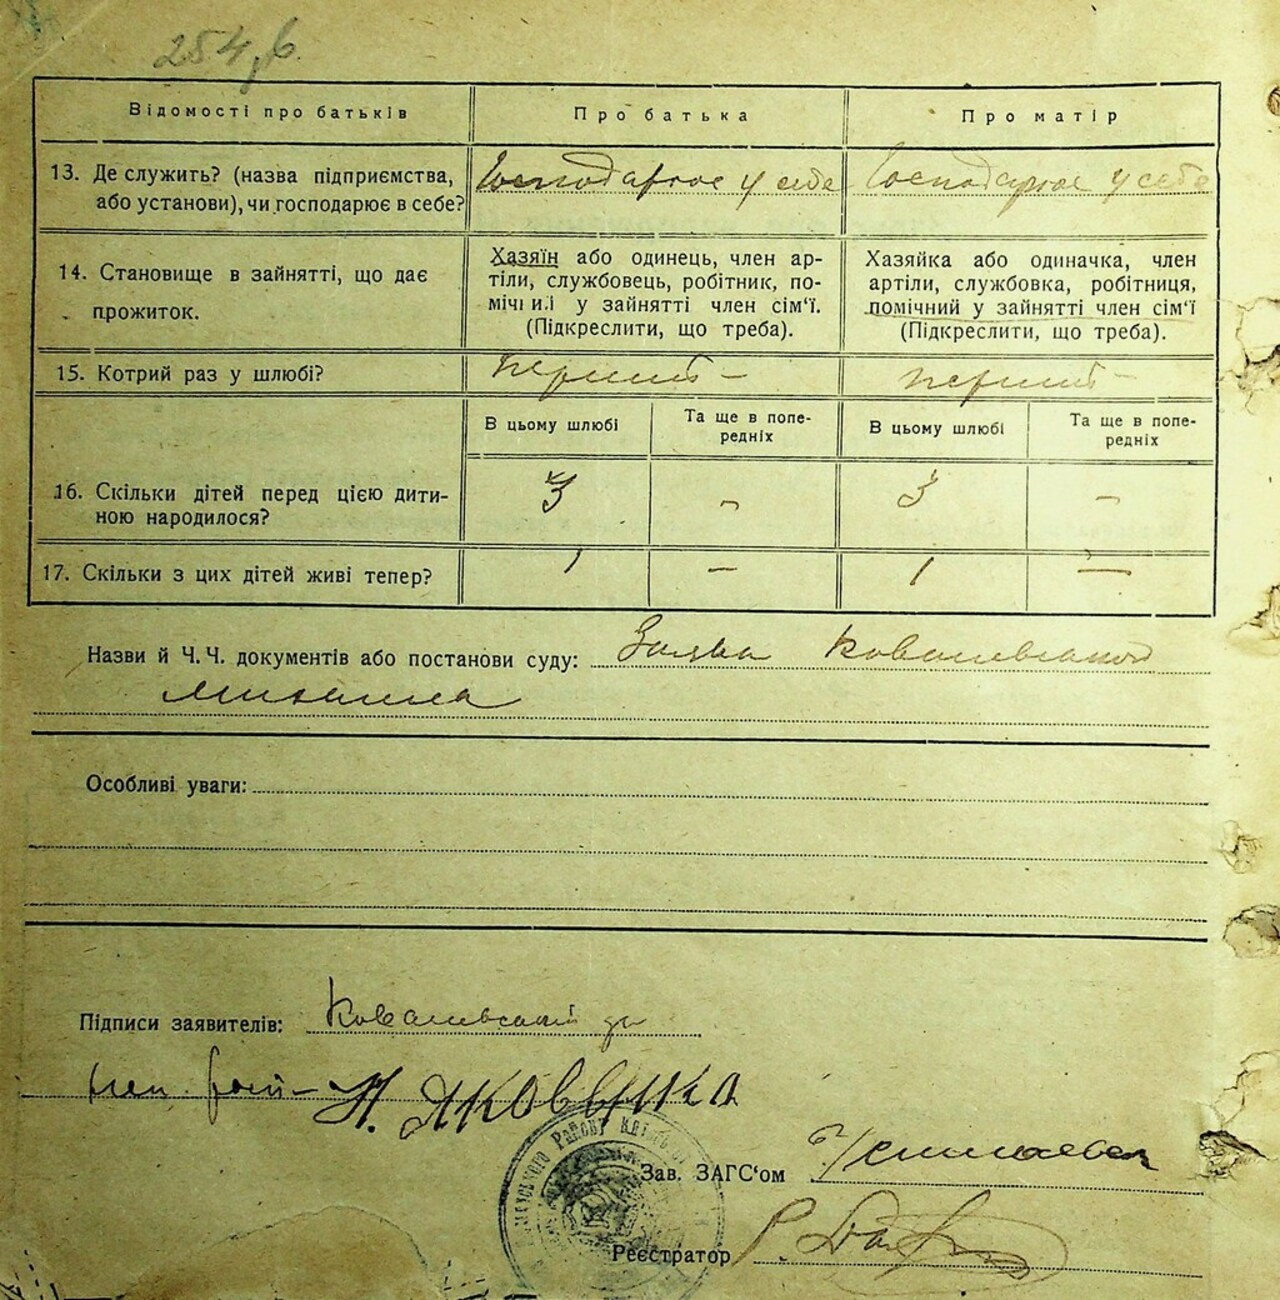 254,6.
Відомості про батьків
Про батька
Про матір
13. Де служить? (назва підприємства,
або установи), чи господарює в себе?
Господарює у себе
Господарює у себе
14. Становище в зайнятті, що дає
прожиток.
Хазяїн або одинець, член ар-
тіли, службовець, робітник, по-
у зайнятті член сім'ї.
(Підкреслити, що треба).
Хазяйка або одиначка, член
артіли, службовка, робітниця,
помічний у зайнятті член сім'ї
(Підкреслити, що треба).
15. Котрий раз у шлюбі?
перший –
перший –
В цьому шлюбі
Та ще в попе-
редніх
В цьому шлюбі
Та ще в попе-
редніх
16. Скільки дітей перед цією дити-
ною народилося?
3
–
3
–
17. Скільки з цих дітей живі тепер?
1
–
1
–
Назви й Ч.Ч. документів або постанови суду: Заява
Особливі уваги:
Підписи заявителів:
Зав. ЗАГС'ом
Реєстратор